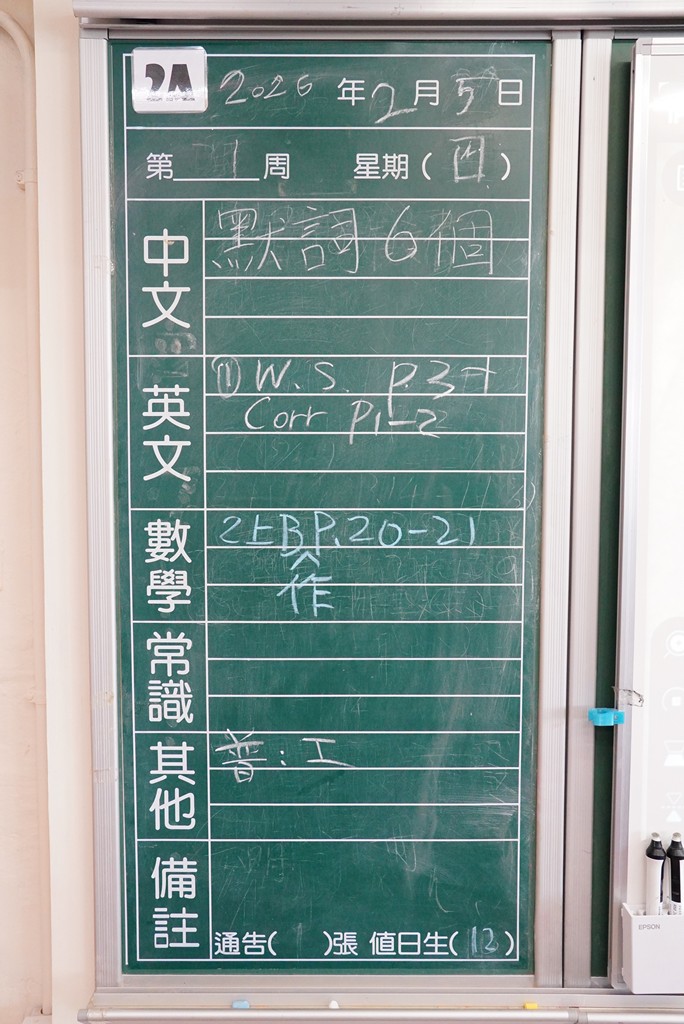 2A 2026年2月5日
第1周 星期(四)
中文
默詞6個
英文
① W.S. P.37
Corr P1-2
數學
2上B P.20-21
作
常識
其他
普:工
備註
通告( )張 值日生(12)
EPSON